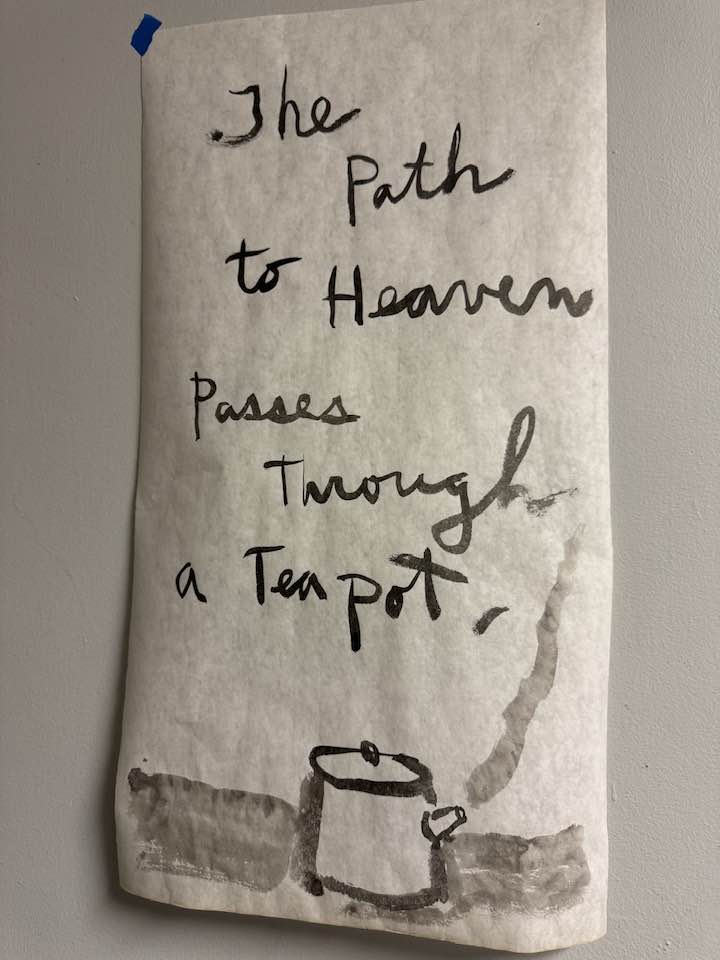 The
Path
to Heaven
Passes
Through
a Teapot.